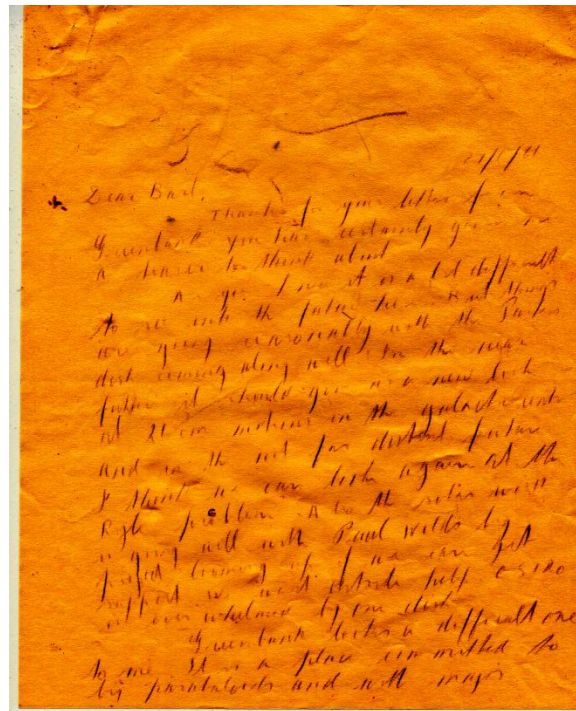 Dear Bart,
Thanks for your letter from
Greenbank you have certainly given me
a to think about
I it is a bit difficult
to see into the future here But things
are going reasonably with the Parkes
dish coming along well. In the near
future it should give us a new look
at 21 cm in the galactic
and in the not far distant future
I think we can look again at the
Ryle problem. the solar work
is going well with Paul Wild's big
project coming up. If we can get
support we outside help CSIRO
overwhelmed by one dish
Greenbank looks a difficult one
to me It is a place committed to
by paraboloids and with major